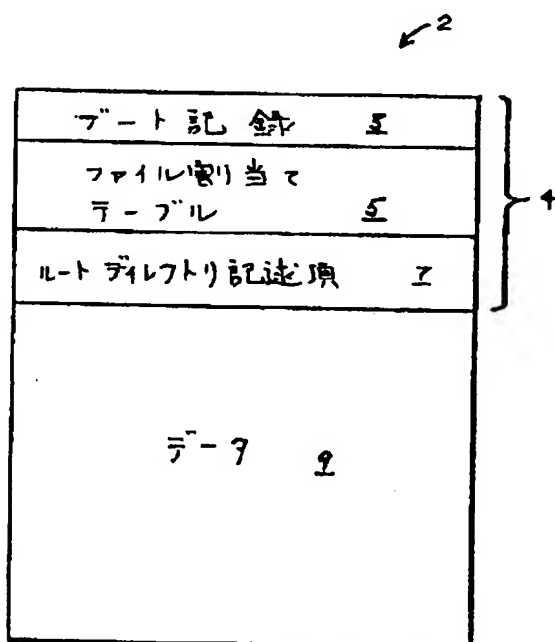 2
ブート記録 3
ファイル割り当て
テーブル 5
4
ルートディレクトリ記述項 7
データ 9